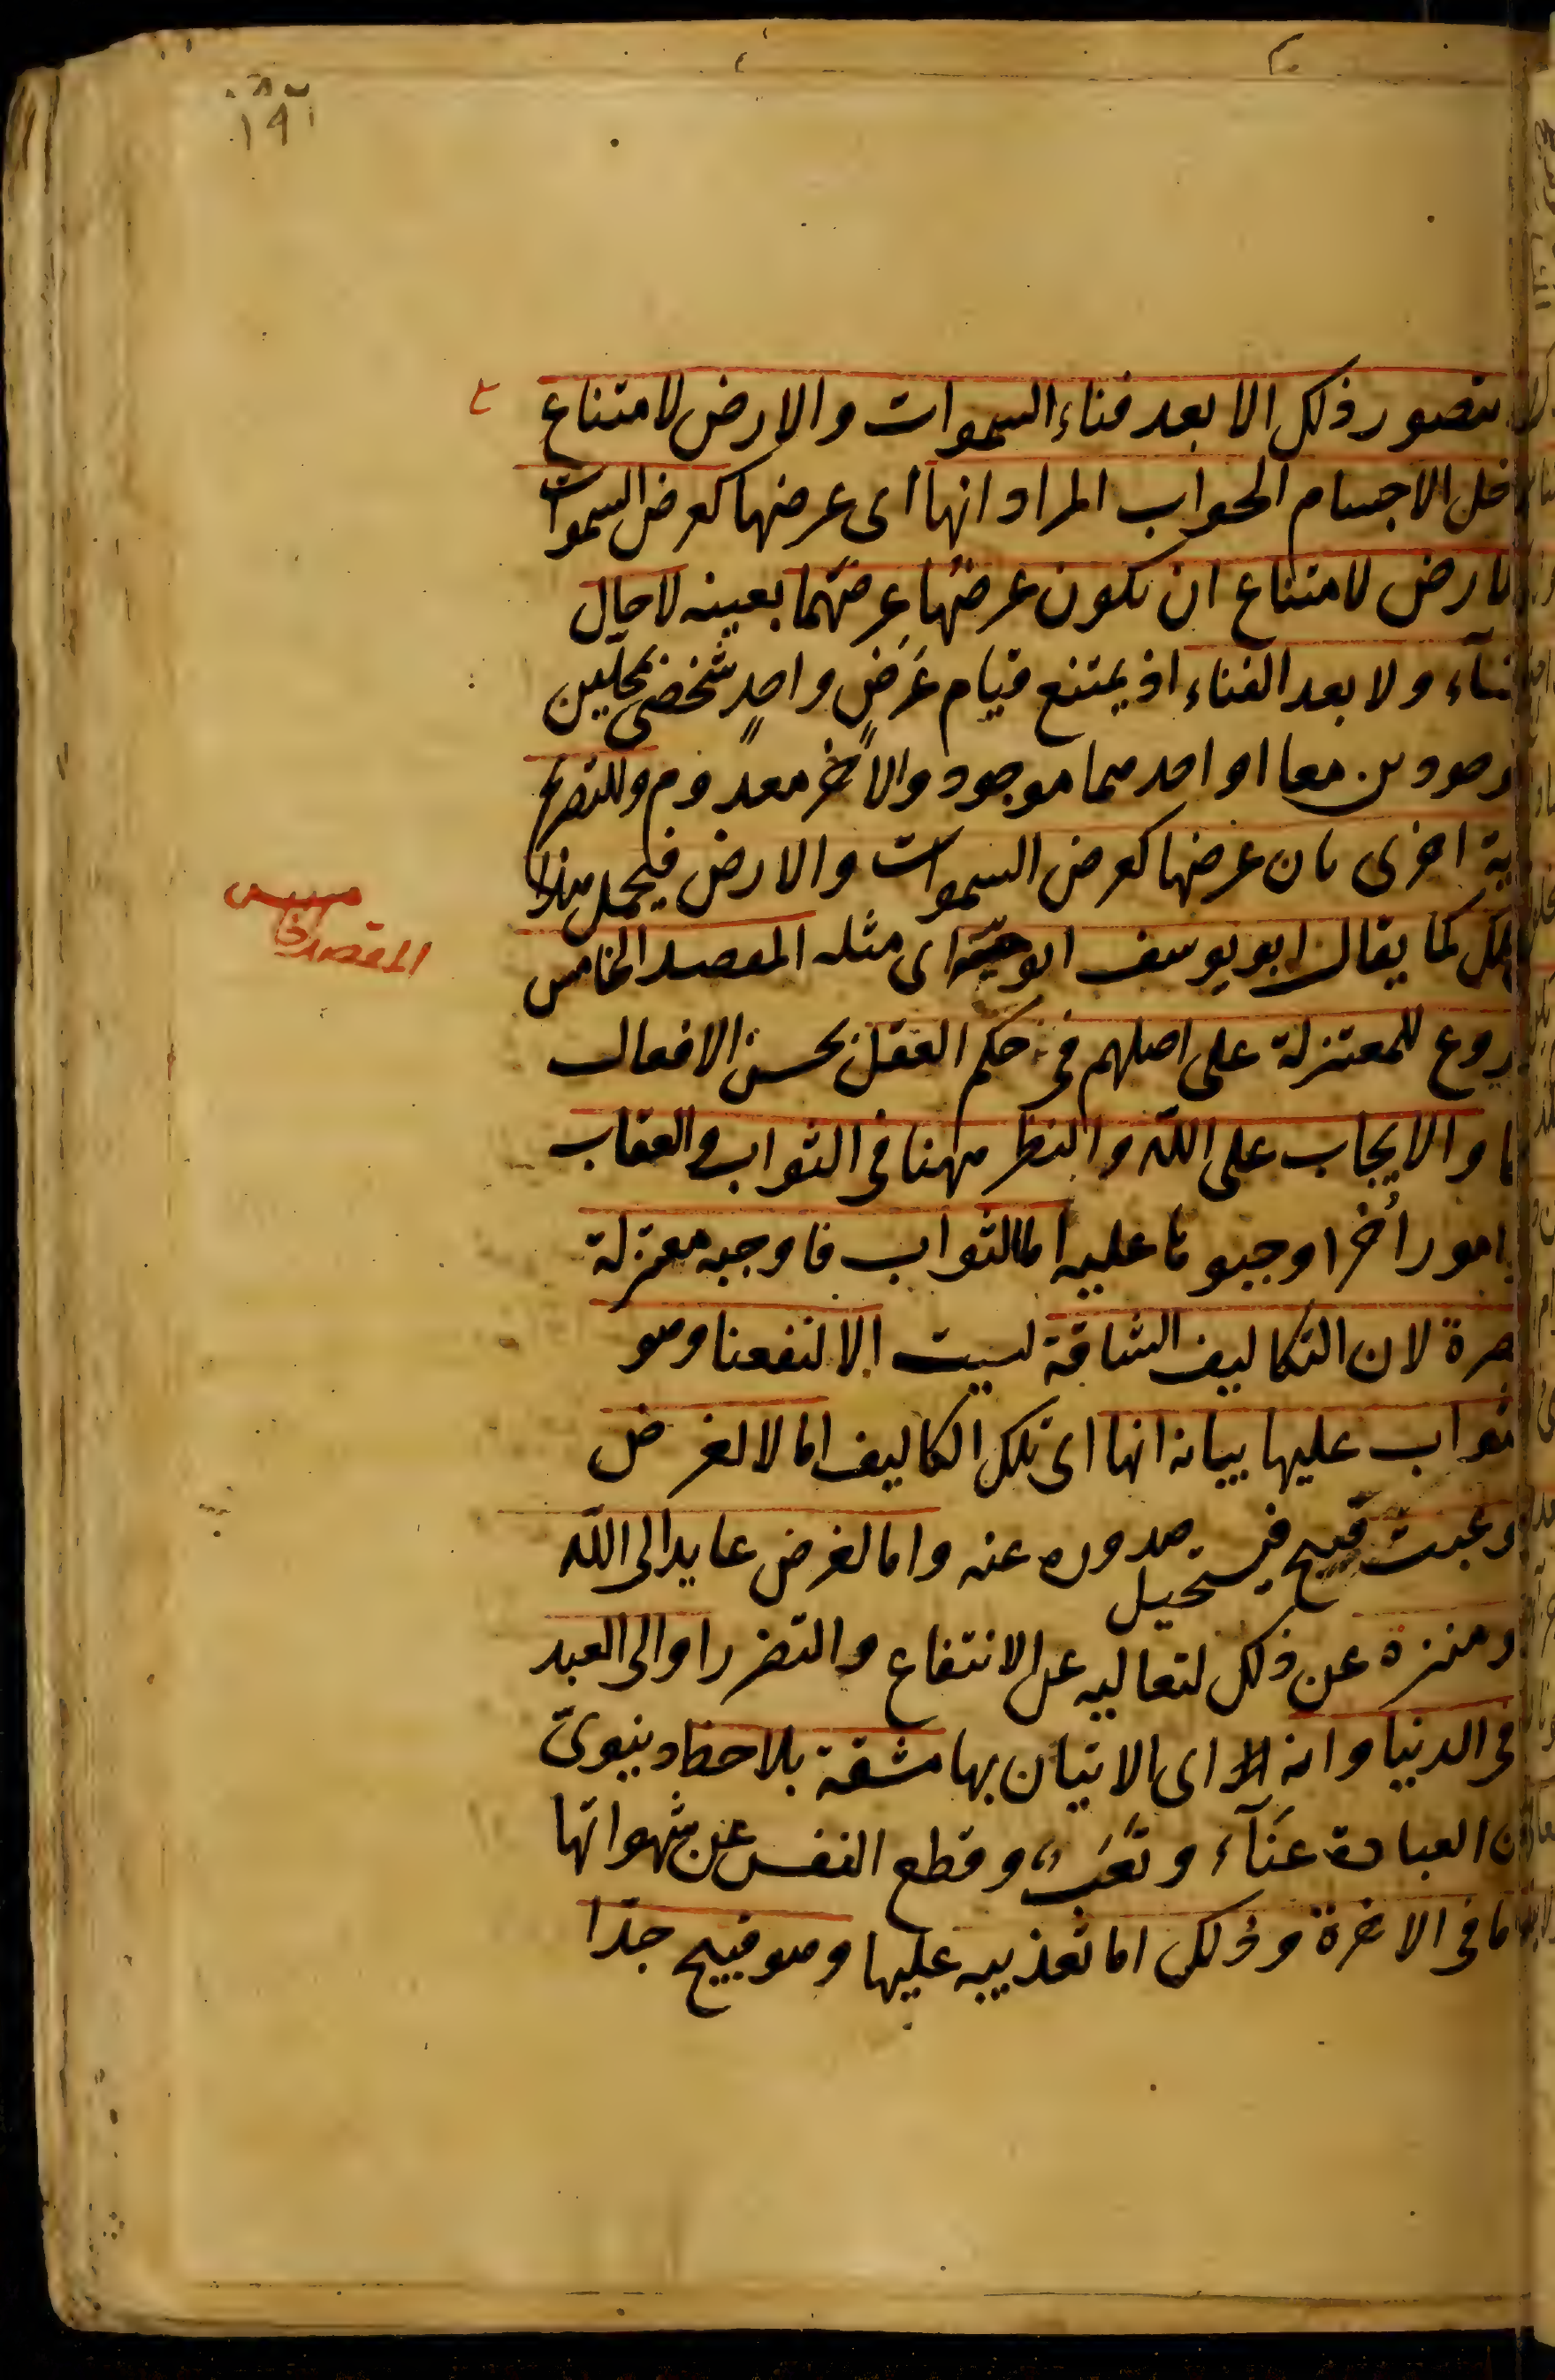 ١٩١
يتصور ذلك الا بعد فناء السموات والارض لامتناع
خل الاجسام الجواب المراد انها اى عرضها كعرض السموات
لارض لامتناع ان يكون عرضها عرضهما بعينه لا حال
ـناء ولا بعد الفناء اذ يمتنع قيام عَرَضٍ واحدٍ شخصى بمحلين
وجودين معا او احدهما موجود والآخر معدوم وللتصريح
ية اخرى بان عرضها كعرض السموات والارض فيحمل هذا
تلك كما يقال ابو يوسف ابو حنيفة اى مثله المقصد الخامس
المقصد الخامس
روع للمعتزلة على اصلهم فى حكم العقل بحسن الافعال
ها والايجاب على الله والنظر ههنا فى الثواب والعقاب
امور أُخر اوجبوها عليه اما الثواب فاوجبه معتزلة
صرة لان التكاليف الشاقة ليست الا لنفعنا وهو
ثواب عليها بيانه انها اى تلك التكاليف اما لا لغرض
و عبث قبيح فيستحيل صدوره عنه واما لغرض عايد الى الله
و منزه عن ذلك لتعاليه عن الانتفاع والتضرر او الى العبد
فى الدنيا وانه اى الاتيان بها مشقة بلا حظ دينوىّ
ن العبادة عَنَآء وتَعَب وقطع النفس عن شهواتها
ما فى الاخرة وذلك اما تعذيبه عليها وهو قبيح جدّا